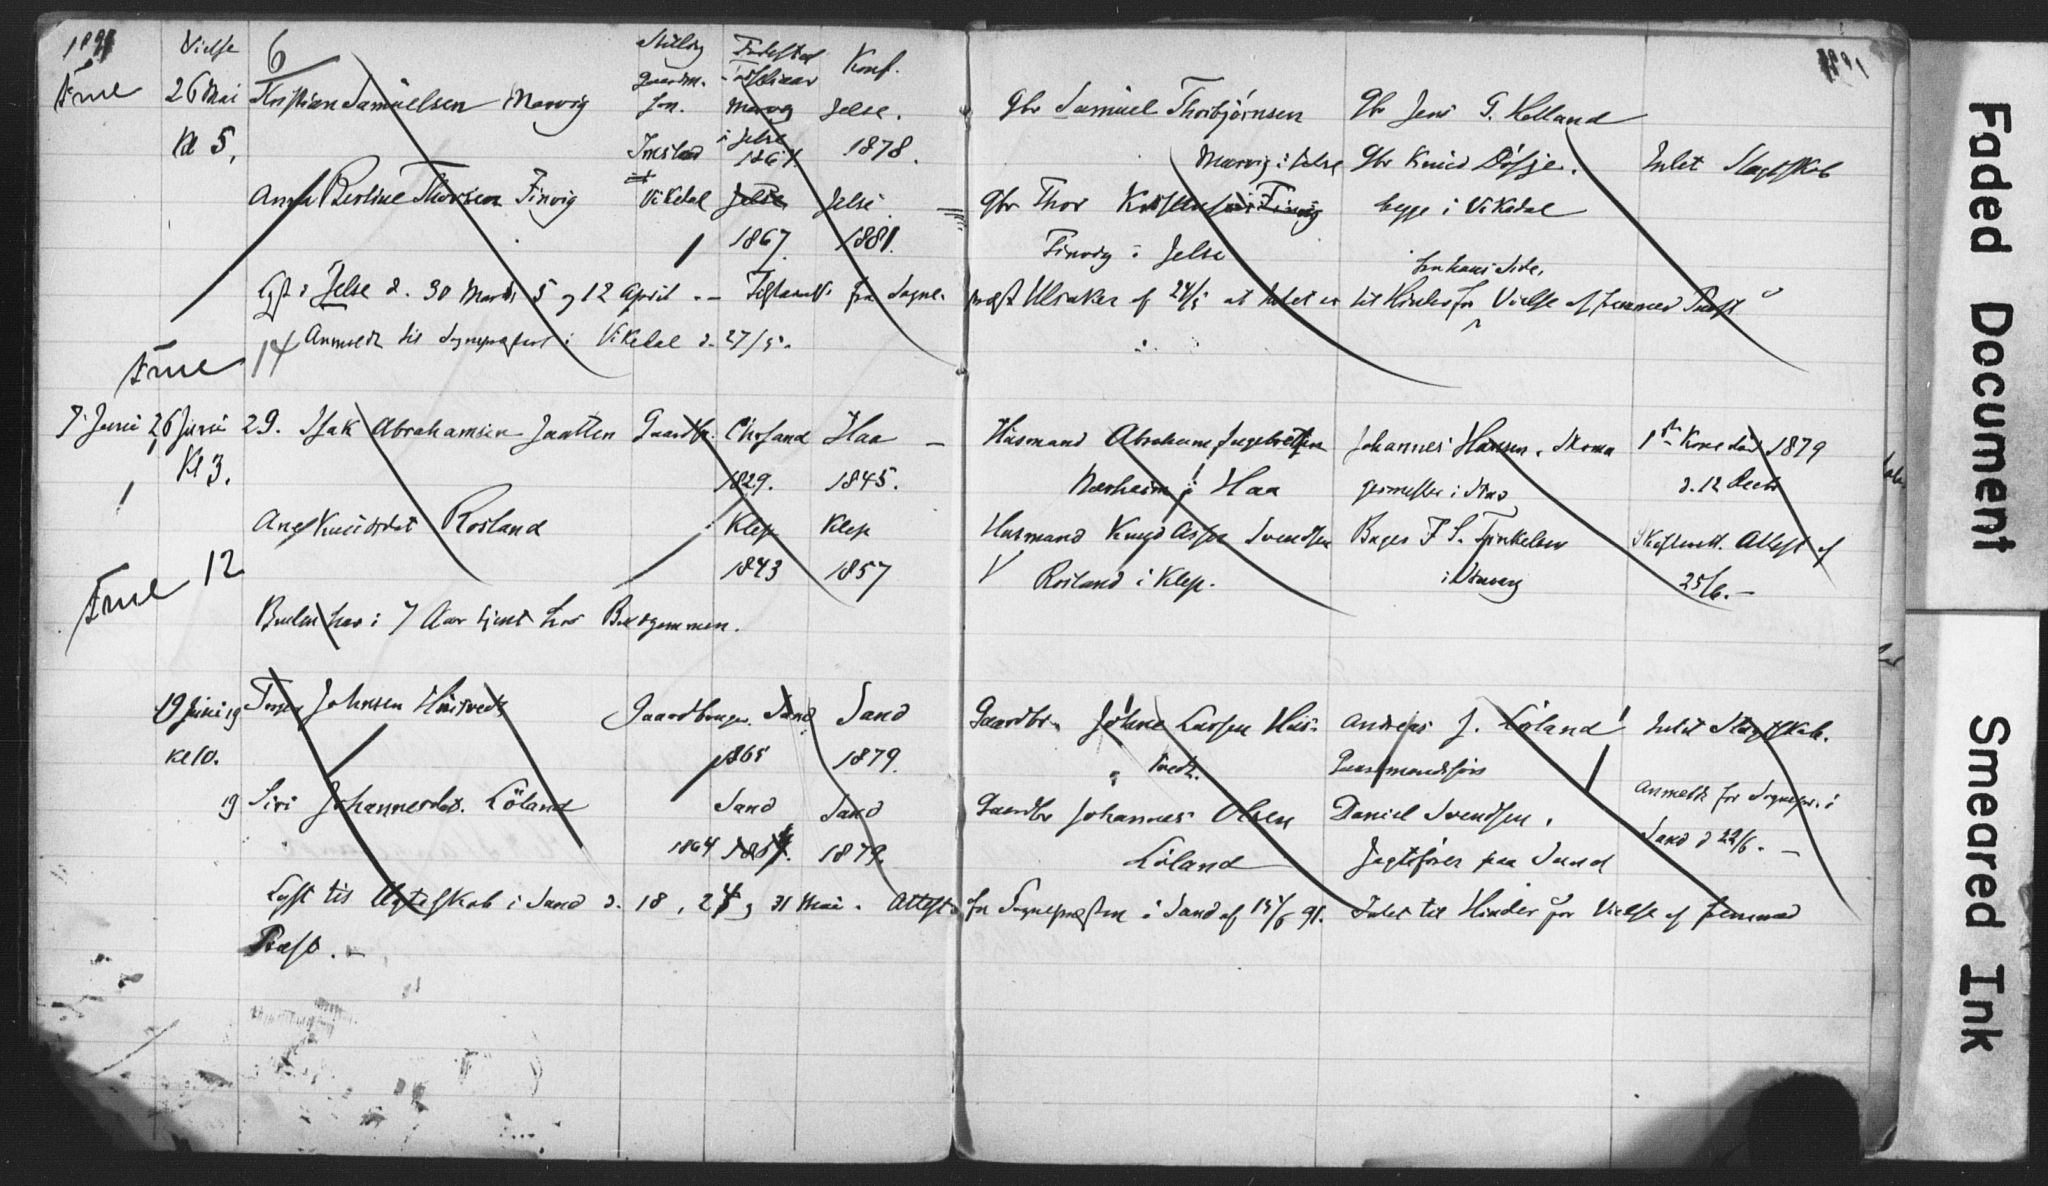 1891 Vielse 6 Stilling Fødested Fødselsaar Konf. 1891
Frue 26 Mai Kristian Samuelsen Marvig Gaardm. Søn. Marvig Jelse. Gbr Samuel Thorbjørnsen Gbr Jens G. Helland
Kl 5, i Jelse 1867. 1878. Marvig i Jelse Gbr Knud Intet Slegtskab
Anna Bertine Thorsen Finvig Vikedal Jelse Jelse. Gbr Thor Finvig begge i Vikedal
1867. 1881. Finvig i Jelse
fra hans Side,
Lyst i Jelse d. 30 Marts 5 og 12 April. – fra Sogne- præst Ulsaker af 24/5 at Intet er til Hinder for Vielse af fremmed Præst
14 Anmeldt til Sognepræsten i Vikedal d. 27/5.
Frue
7 Juni 26 Juni 29. Isak Abrahamsen Jaatten Gaardbr. Haa – Husmand Abraham Ingebretsen Johannes Hansen. Skoma 1ste Kone død 1879
Kl 3. 1829. 1845. Nærheim i Haa germester i Stav d. 12 Decbr
Ane Knudsdat Rosland Klep Klep Husmand Knud Svendsen Bager F S. Attest af
1843 1857 Rosland i Klep. 25/6. –
Frue 12
Bruden har i 7 Aar tjent hos Brudgommen.
19 Juni 19 Johnsen Gaardbruger. Sand Sand Gaardbr. Johne Larsen Hus- Andreas J. Löland Intet Slegtskab.
Kl 10. 1865 1879. tvedt.
19 Siri Johannesdat. Löland Sand Sand Gaardbr Johannes Olsen Daniel Svendsen. Anmeldt for Sognepr. i
1864 1879. Löland Jagtfører paa Sand Sand d 22/6. –
Lyst til Ægteskab i Sand d. 18, 24 og 31 Mai. Attest fra Sognepræsten i Sand af 15/6 91. Intet til Hinder for Vielse af fremmed
Præst. –
Faded Document
Smeared Ink